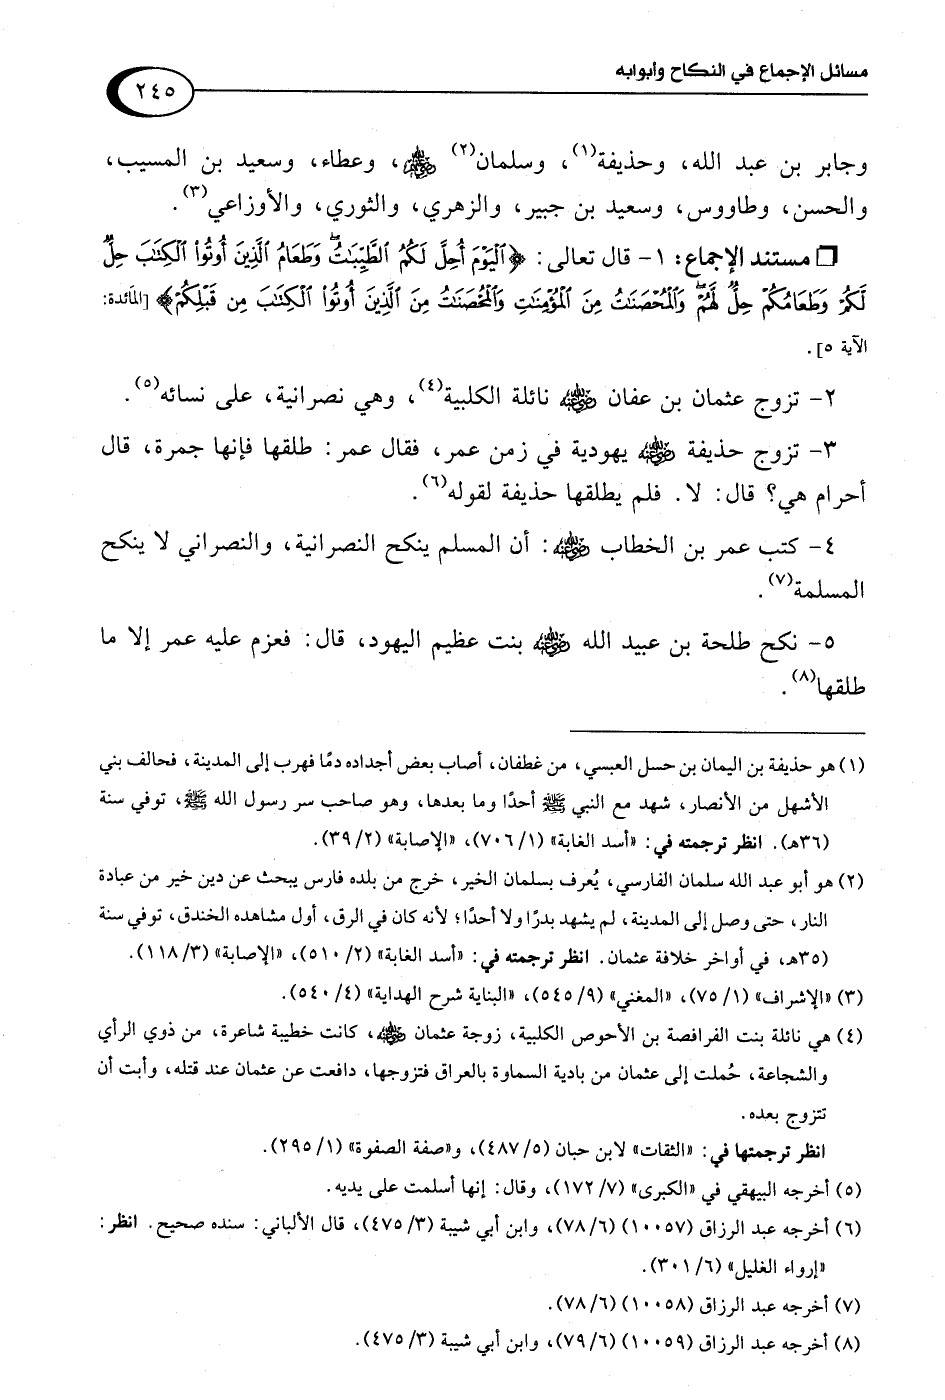 مسائل الإجماع في النكاح وأبوابه
٢٤٥
وجابر بن عبد الله، وحذيفة(١)، وسلمان(٢) ﷺ، وعطاء، وسعيد بن المسيب،
والحسن، وطاووس، وسعيد بن جبير، والزهري، والثوري، والأوزاعي(٣).
❑ مستند الإجماع: ١- قال تعالى: ﴿ٱلۡيَوۡمَ أُحِلَّ لَكُمُ ٱلطَّيِّبَٰتُۖ وَطَعَامُ ٱلَّذِينَ أُوتُواْ ٱلۡكِتَٰبَ حِلّٞ
لَّكُمۡ وَطَعَامُكُمۡ حِلّٞ لَّهُمۡۖ وَٱلۡمُحۡصَنَٰتُ مِنَ ٱلۡمُؤۡمِنَٰتِ وَٱلۡمُحۡصَنَٰتُ مِنَ ٱلَّذِينَ أُوتُواْ ٱلۡكِتَٰبَ مِن قَبۡلِكُمۡ﴾ [المَائدة:
الآية ٥].
٢- تزوج عثمان بن عفان ﷺ نائلة الكلبية(٤)، وهي نصرانية، على نسائه(٥).
٣- تزوج حذيفة ﷺ يهودية في زمن عمر، فقال عمر: طلقها فإنها جمرة، قال
أحرام هي؟ قال: لا. فلم يطلقها حذيفة لقوله(٦).
٤- كتب عمر بن الخطاب ﷺ: أن المسلم ينكح النصرانية، والنصراني لا ينكح
المسلمة(٧).
٥- نكح طلحة بن عبيد الله ﷺ بنت عظيم اليهود، قال: فعزم عليه عمر إلا ما
طلقها(٨).
(١) هو حذيفة بن اليمان بن حسل العبسي، من غطفان، أصاب بعض أجداده دمًا فهرب إلى المدينة، فحالف بني
الأشهل من الأنصار، شهد مع النبي ﷺ أحدًا وما بعدها، وهو صاحب سر رسول الله ﷺ، توفي سنة
(٣٦هـ). انظر ترجمته في: «أسد الغابة» (١/ ٧٠٦)، «الإصابة» (٢/ ٣٩).
(٢) هو أبو عبد الله سلمان الفارسي، يُعرف بسلمان الخير، خرج من بلده فارس يبحث عن دين خير من عبادة
النار، حتى وصل إلى المدينة، لم يشهد بدرًا ولا أحدًا؛ لأنه كان في الرق، أول مشاهده الخندق، توفي سنة
(٣٥هـ، في أواخر خلافة عثمان. انظر ترجمته في: «أسد الغابة» (٢/ ٥١٠)، «الإصابة» (٣/ ١١٨).
(٣) «الإشراف» (١/ ٧٥)، «المغني» (٩/ ٥٤٥)، «البناية شرح الهداية» (٤/ ٥٤٠).
(٤) هي نائلة بنت الفرافصة بن الأحوص الكلبية، زوجة عثمان ﷺ، كانت خطيبة شاعرة، من ذوي الرأي
والشجاعة، حُملت إلى عثمان من بادية السماوة بالعراق فتزوجها، دافعت عن عثمان عند قتله، وأبت أن
تتزوج بعده.
انظر ترجمتها في: «الثقات» لابن حبان (٥/ ٤٨٧)، و«صفة الصفوة» (١/ ٢٩٥).
(٥) أخرجه البيهقي في «الكبرى» (٧/ ١٧٢)، وقال: إنها أسلمت على يديه.
(٦) أخرجه عبد الرزاق (١٠٠٥٧) (٦/ ٧٨)، وابن أبي شيبة (٣/ ٤٧٥)، قال الألباني: سنده صحيح. انظر:
«إرواء الغليل» (٦/ ٣٠١).
(٧) أخرجه عبد الرزاق (١٠٠٥٨) (٦/ ٧٨).
(٨) أخرجه عبد الرزاق (١٠٠٥٩) (٦/ ٧٩)، وابن أبي شيبة (٣/ ٤٧٥).